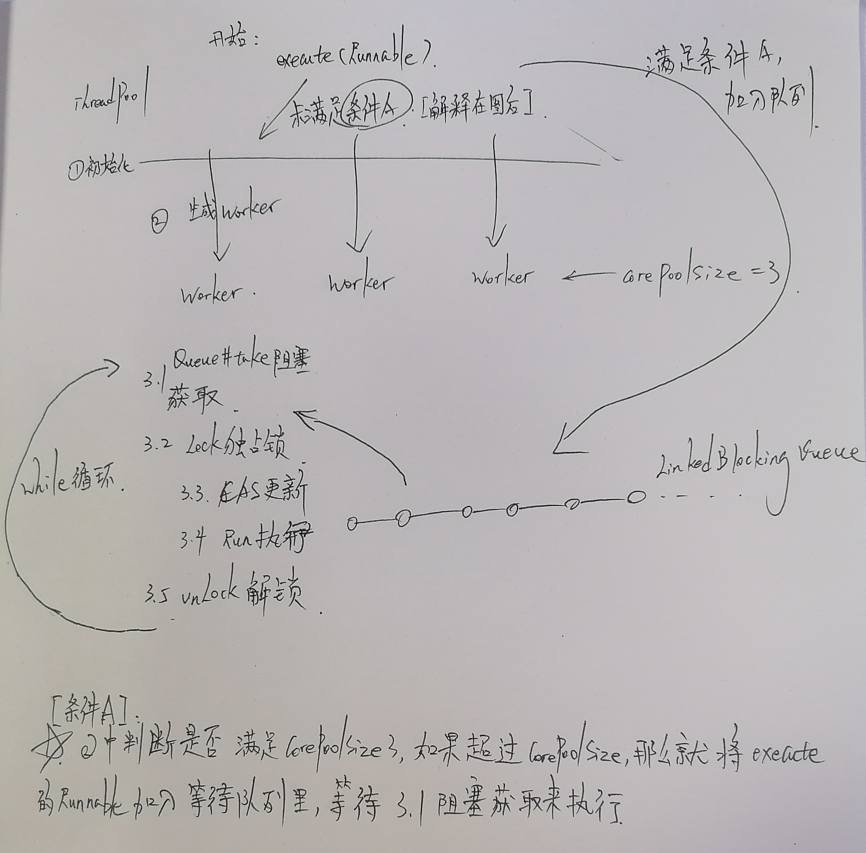 开始：
execute(Runnable).
ThreadPool
未满足条件A.[解释在图右].
满足条件A,
加入队列.
①初始化
② 生成Worker
Worker.
Worker
Worker
corePoolSize=3
3.1 Queue#take阻塞
获取.
3.2 Lock独占锁.
3.3. CAS更新
3.4 Run执行
3.5 unLock解锁.
while循环.
LinkedBlockingQueue
[条件A]:
②中判断是否满足corePoolSize3,如果超过corePoolSize,那么就将execute
的Runnable加入等待队列里,等待3.1阻塞获取来执行.